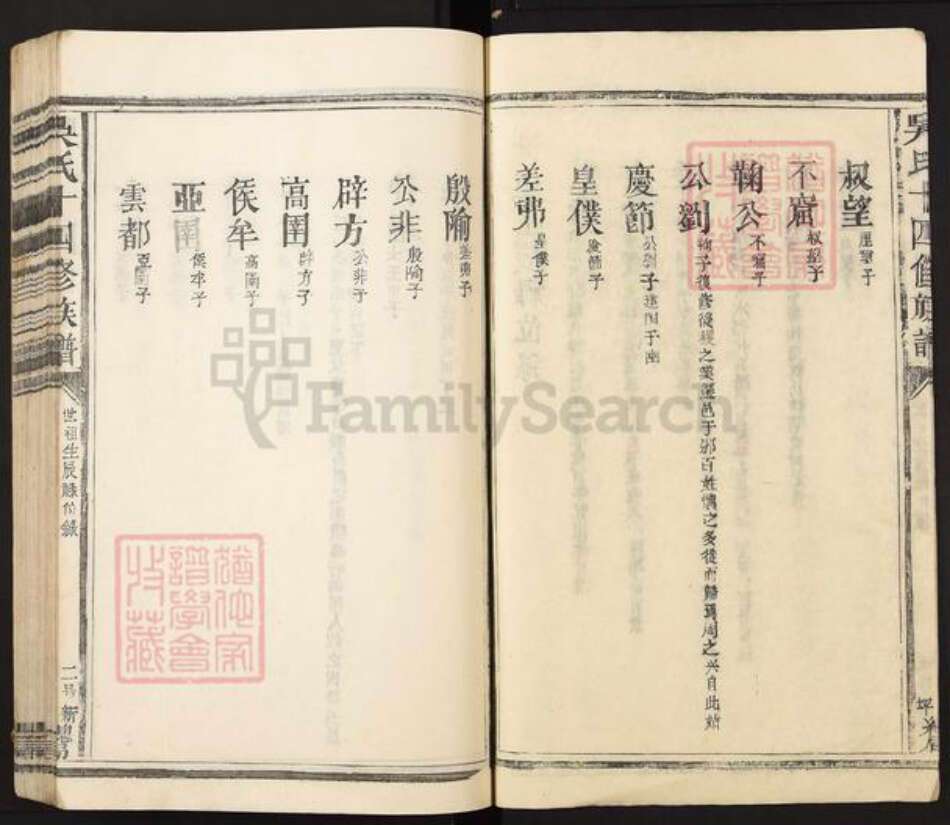 叔望 㞐璽子
不窋 叔望子
鞠公 不窋子
公劉 鞠子復修後稷之業遷邑于邠百姓懷之多從而歸焉周之興自此始
慶節 公劉子遷國于豳
皇僕 慶節子
差弗 皇僕子
殷隃 差弗子
公非 殷隃子
辟方 公非子
高圉 辟方子
侯牟 高圉子
亞圉 侯牟子
雲都 亞圉子
吳氏十四修族譜
世祖生辰
二
吳氏十四修族譜
猶他家譜學會收藏
FamilySearch